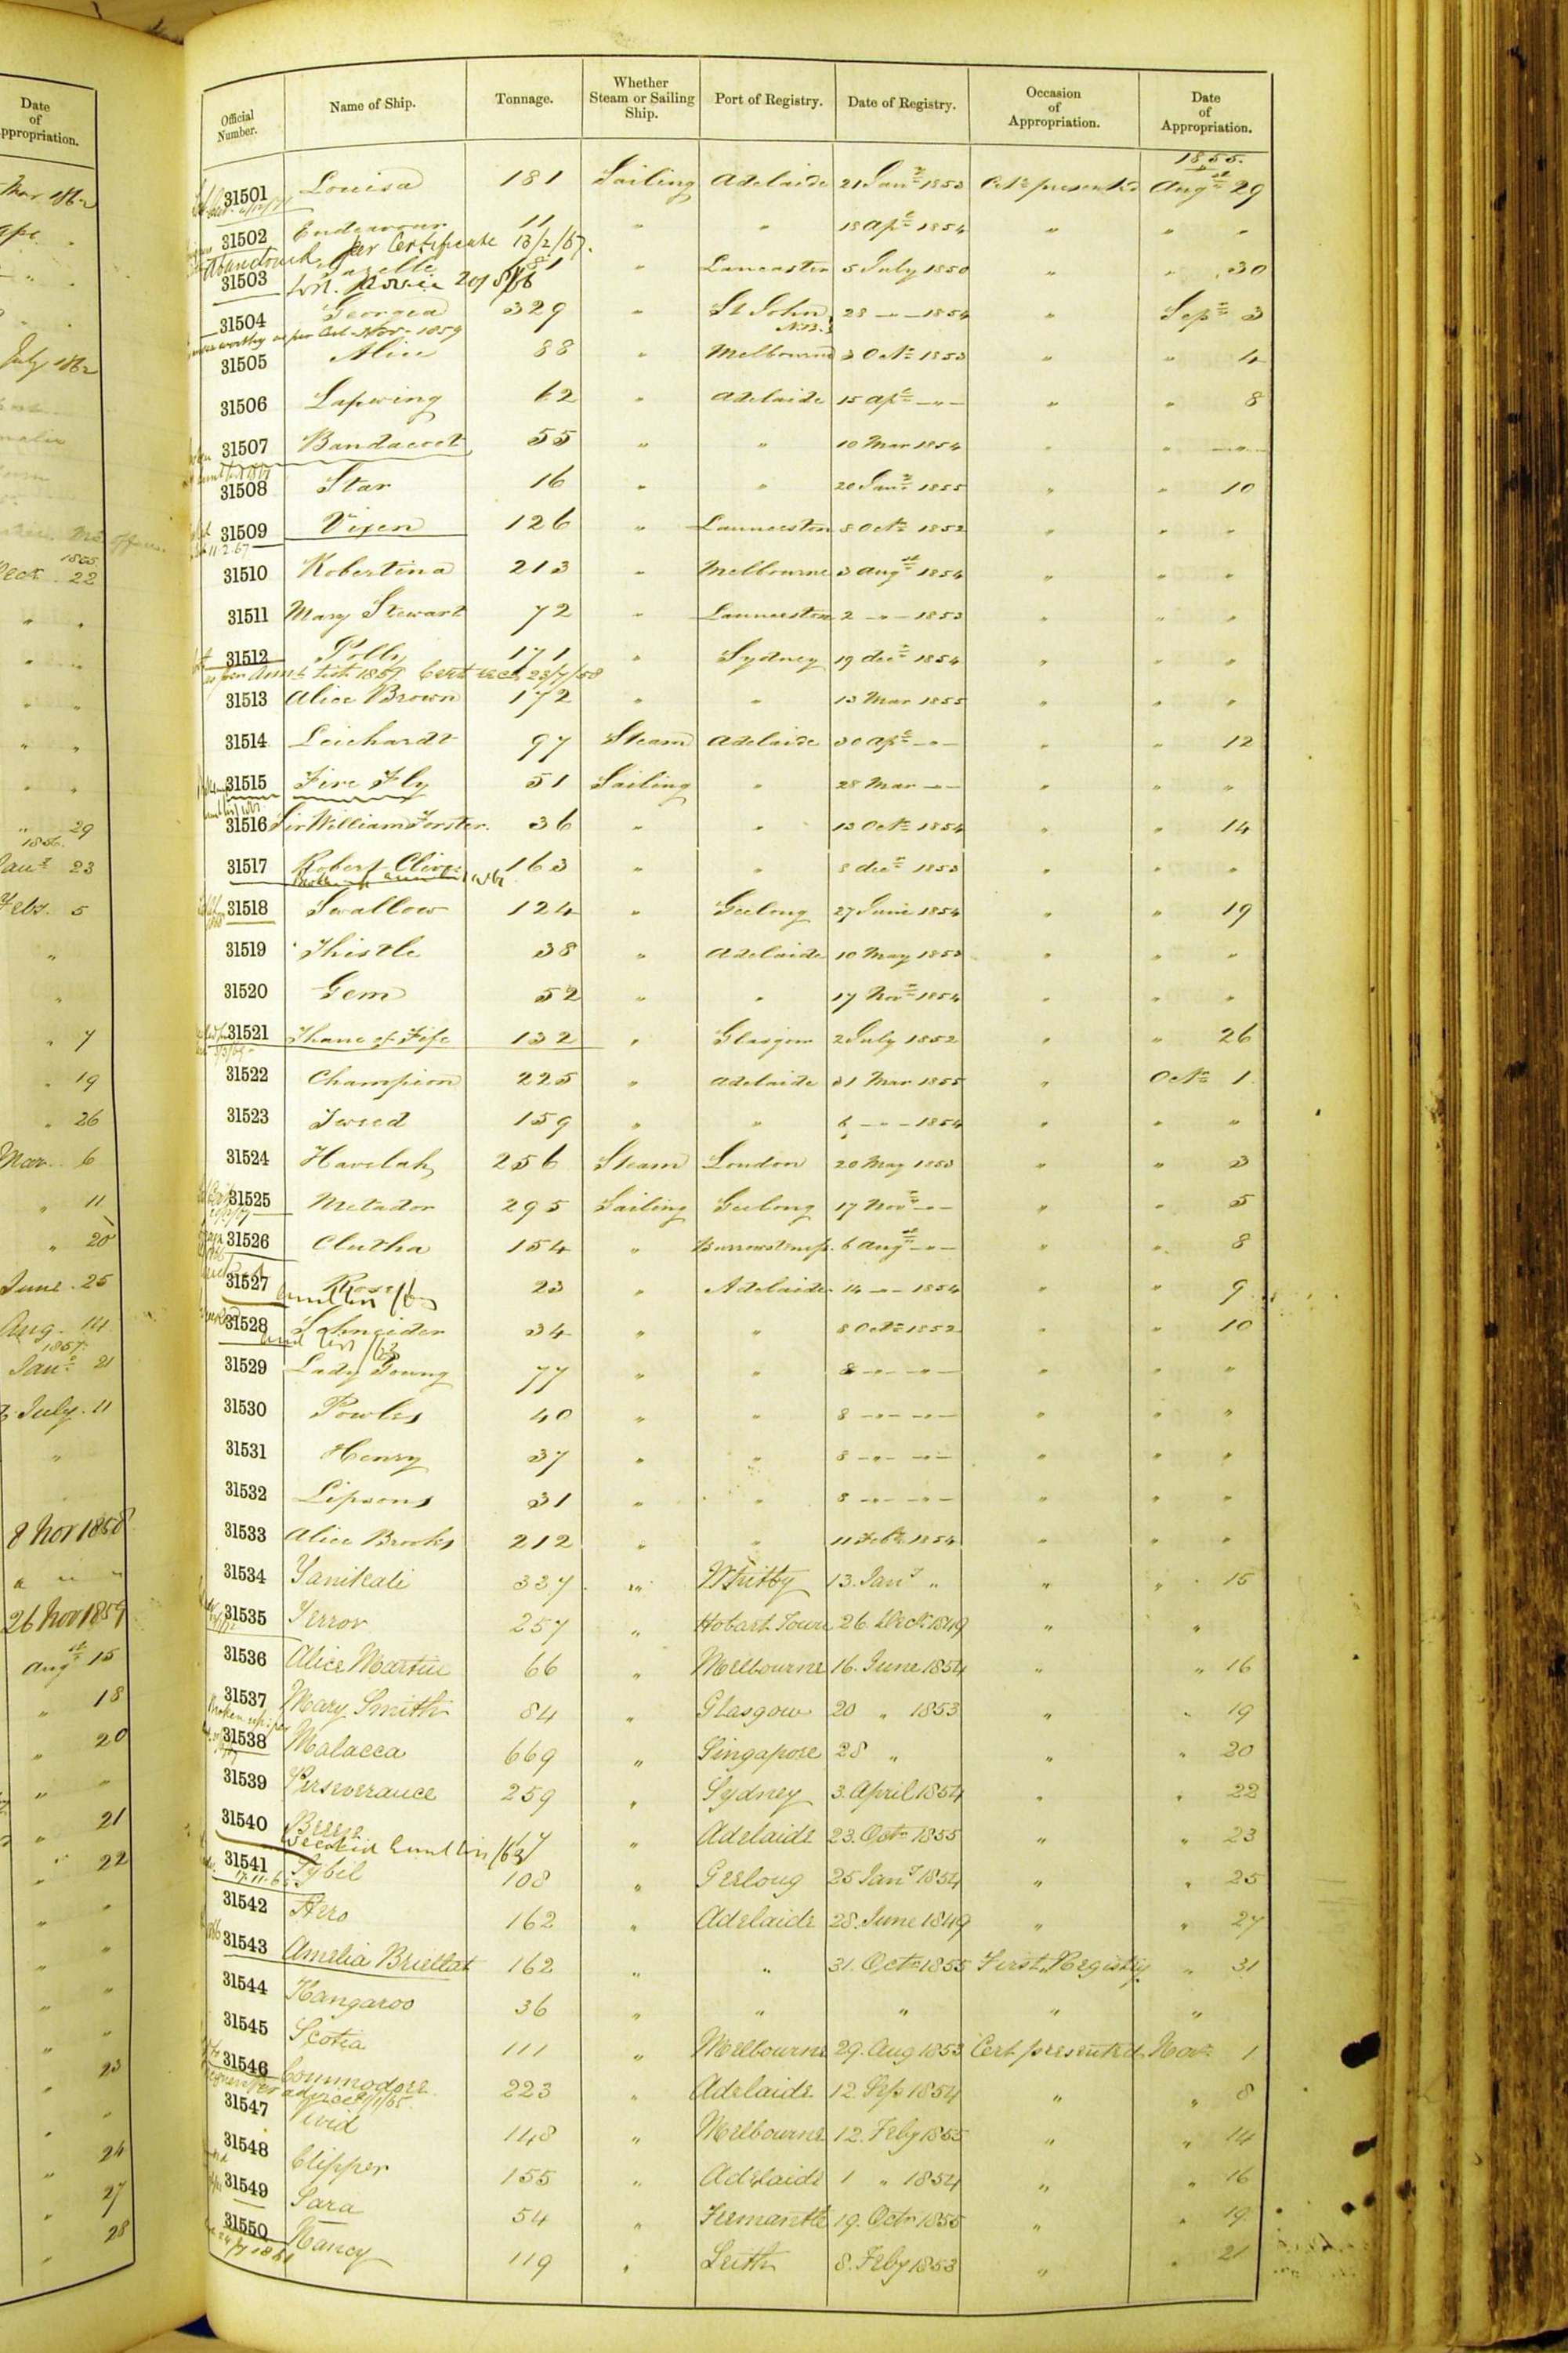 Date
of
ppropriation.
Mar 1862
July 1862
1855
Dec. 22
" 29
1856
Jany 23
Feby. 5
" 7
" 19
" 26
Mar. 6
" 11
" 20
June. 25
Aug. 14
1857.
Jany 21
July. 11
8 Nov 1858
26 Nov 1859
Augst 15
" 18
" 20
" 21
" 22
" 23
" 24
" 27
" 28
Official Number. Name of Ship. Tonnage. Whether Steam or Sailing Ship. Port of Registry. Date of Registry. Occasion of Appropriation. Date of Appropriation.
1855.
31501 Louisa 181 Sailing Adelaide 21 Jany 1853 Cete presented Augst 29
31502 Endeavour 11 " " 18 Apl 1854 " " "
Abandoned per Certificate 13/2/67.
31503 Gazelle 81 " Lancaster 5 July 1850 " " 30
31504 Georgia 329 " St John N.B. 28 -"- 1854 " Sepr 3
worthy as per Cert Nov. 1859
31505 Alice 88 " Melbourne 3 Octr 1853 " " 4
31506 Lapwing 62 " Adelaide 15 Apl -"- " " 8
31507 Bandacoot 55 " " 10 Mar 1854 " " -"-
31508 Star 16 " " 20 Jany 1855 " " 10
31509 Vixen 126 " Launceston 8 Octr 1852 " " "
11.2.67
31510 Robertina 213 " Melbourne 3 Augst 1854 " " "
31511 Mary Stewart 72 " Launceston 2 -"- 1853 " " "
31512 Polly 171 " Sydney 19 Decr 1854 " " "
as per Annl List 1857. Cert recd 23/7/58
31513 Alice Brown 172 " " 13 Mar 1855 " " "
31514 Leichardt 97 Steam Adelaide 30 Apl -"- " " 12
31515 Fire Fly 51 Sailing " 28 Mar -"- " " "
31516 Sir William Forster. 36 " " 13 Octr 1854 " " 14
31517 Robert Clive 163 " " 8 Decr 1853 " " "
31518 Swallow 124 " Geelong 27 June 1854 " " 19
31519 Thistle 38 " Adelaide 10 May 1853 " " "
31520 Gem 52 " " 17 Novr 1854 " " "
31521 Thane of Fife 132 " Glasgow 2 July 1852 " " 26
31522 Champion 225 " Adelaide 31 Mar 1855 " Octr 1
31523 Tweed 159 " " 6 -"- 1854 " " "
31524 Havilah 256 Steam London 20 May 1853 " " 3
31525 Metador 295 Sailing Geelong 17 Novr -"- " " 5
31526 Clutha 154 " Borrowstoness. 6 Augst -"- " " 8
31527 Rose 23 " Adelaide 14 -"- 1854 " " 9
31528 Schneider 34 " " 8 Octr 1852 " " 10
31529 Lady Young 77 " " 8 -"- -"- " " "
31530 Powles 40 " " 8 -"- -"- " " "
31531 Henry 37 " " 8 -"- -"- " " "
31532 Lipsons 31 " " 8 -"- -"- " " "
31533 Alice Brooks 212 " " 11 Feby 1854 " " "
31534 Yanikali 337 " Whitby 13. Jany " " " 15
31535 Terror 257 " Hobart Town 26. Decr 1849 " "
31536 Alice Martin 66 " Melbourne 16. June 1854 " " 16
31537 Mary Smith 84 " Glasgow 20 " 1853 " " 19
31538 Malacca 669 " Singapore 28 " " " 20
31539 Perseverance 259 " Sydney 3. April 1854 " " 22
31540 17 " Adelaide 23. Octr 1855 " " 23
31541 Sybil 108 " Geelong 25 Jany 1854 " " 25
17.11.65
31542 Hero 162 " Adelaide 28. June 1849 " " 27
31543 Amelia Briellat 162 " " 31. Octr 1855 First Registry " 31
31544 Kangaroo 36 " " " " "
31545 Scotia 111 " Melbourne 29. Aug 1853 Cert presented Novr 1
31546 Commodore 223 " Adelaide 12. Sep 1854 " " 8
31547 Vivid 148 " Melbourne 12. Feby 1855 " " 14
31548 Clipper 155 " Adelaide 1 " 1854 " " 16
31549 Sara 54 " Fremantle 19. Octr 1855 " " 19
31550 Nancy 119 " Leith 8. Feby 1853 " " 21